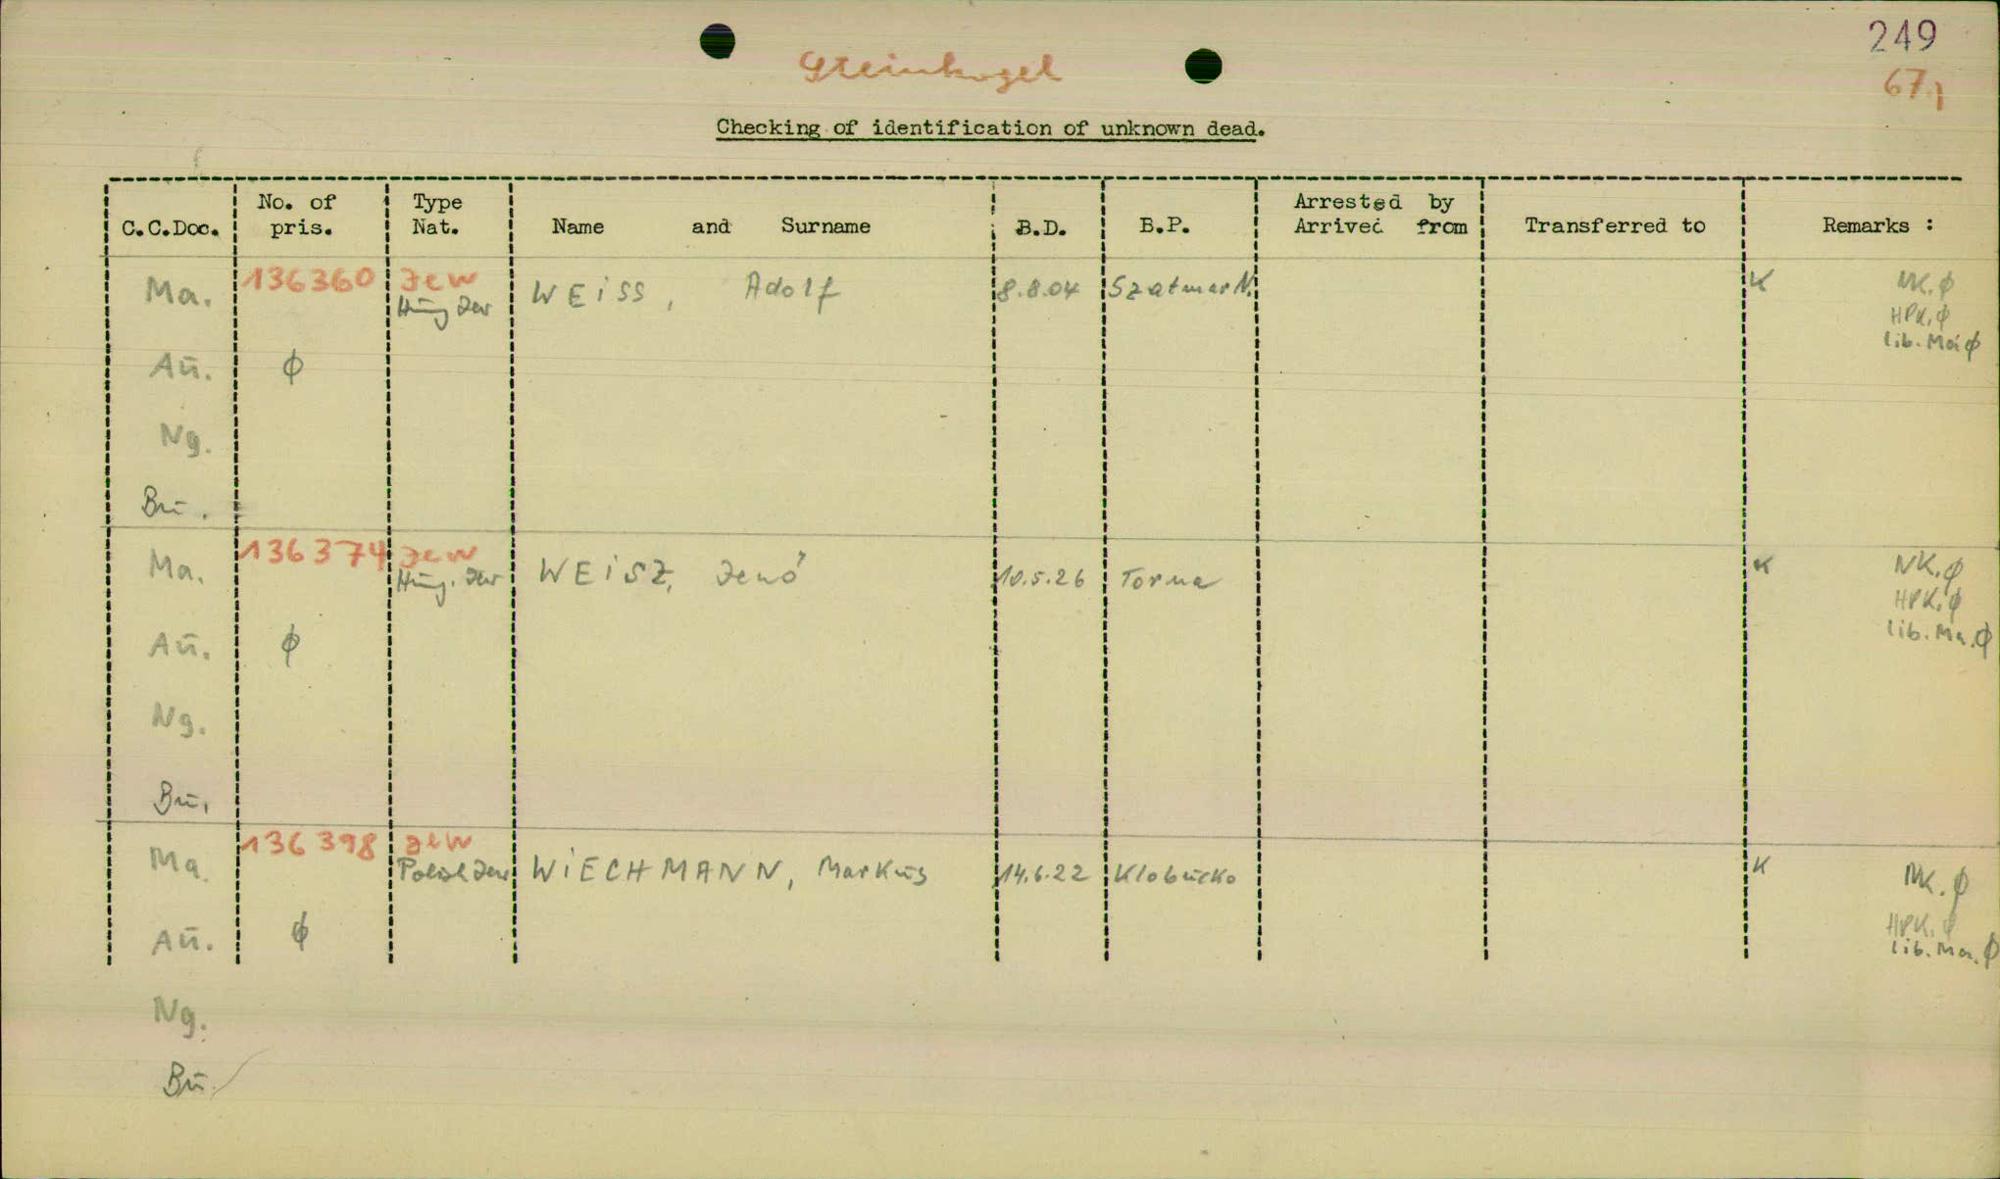 249
Steinkogel
67,
Checking of identification of unknown dead.
C.C.Doc. No. of pris. Type Nat. Name and Surname B.D. B.P. Arrested by Arrived from Transferred to Remarks :
Ma. 136360 Jew WEiSS, Adolf 8.8.04 Szatmar N. K NK. φ
Hūng Jew HPK. φ
lib. Ma φ
Aū. φ
Ng.
Bū.
Ma. 136374 Jew WEiSZ, Jenő 10.5.26 Torna K NK. φ
Hūng. Jew HPK. φ
lib. Ma. φ
Aū. φ
Ng.
Bū.
Ma. 136398 Jew WiECHMANN, Markūs 14.6.22 Klobūcko K NK. φ
Polish Jew HPK. φ
Aū. φ lib. Ma. φ
Ng.
Bū.